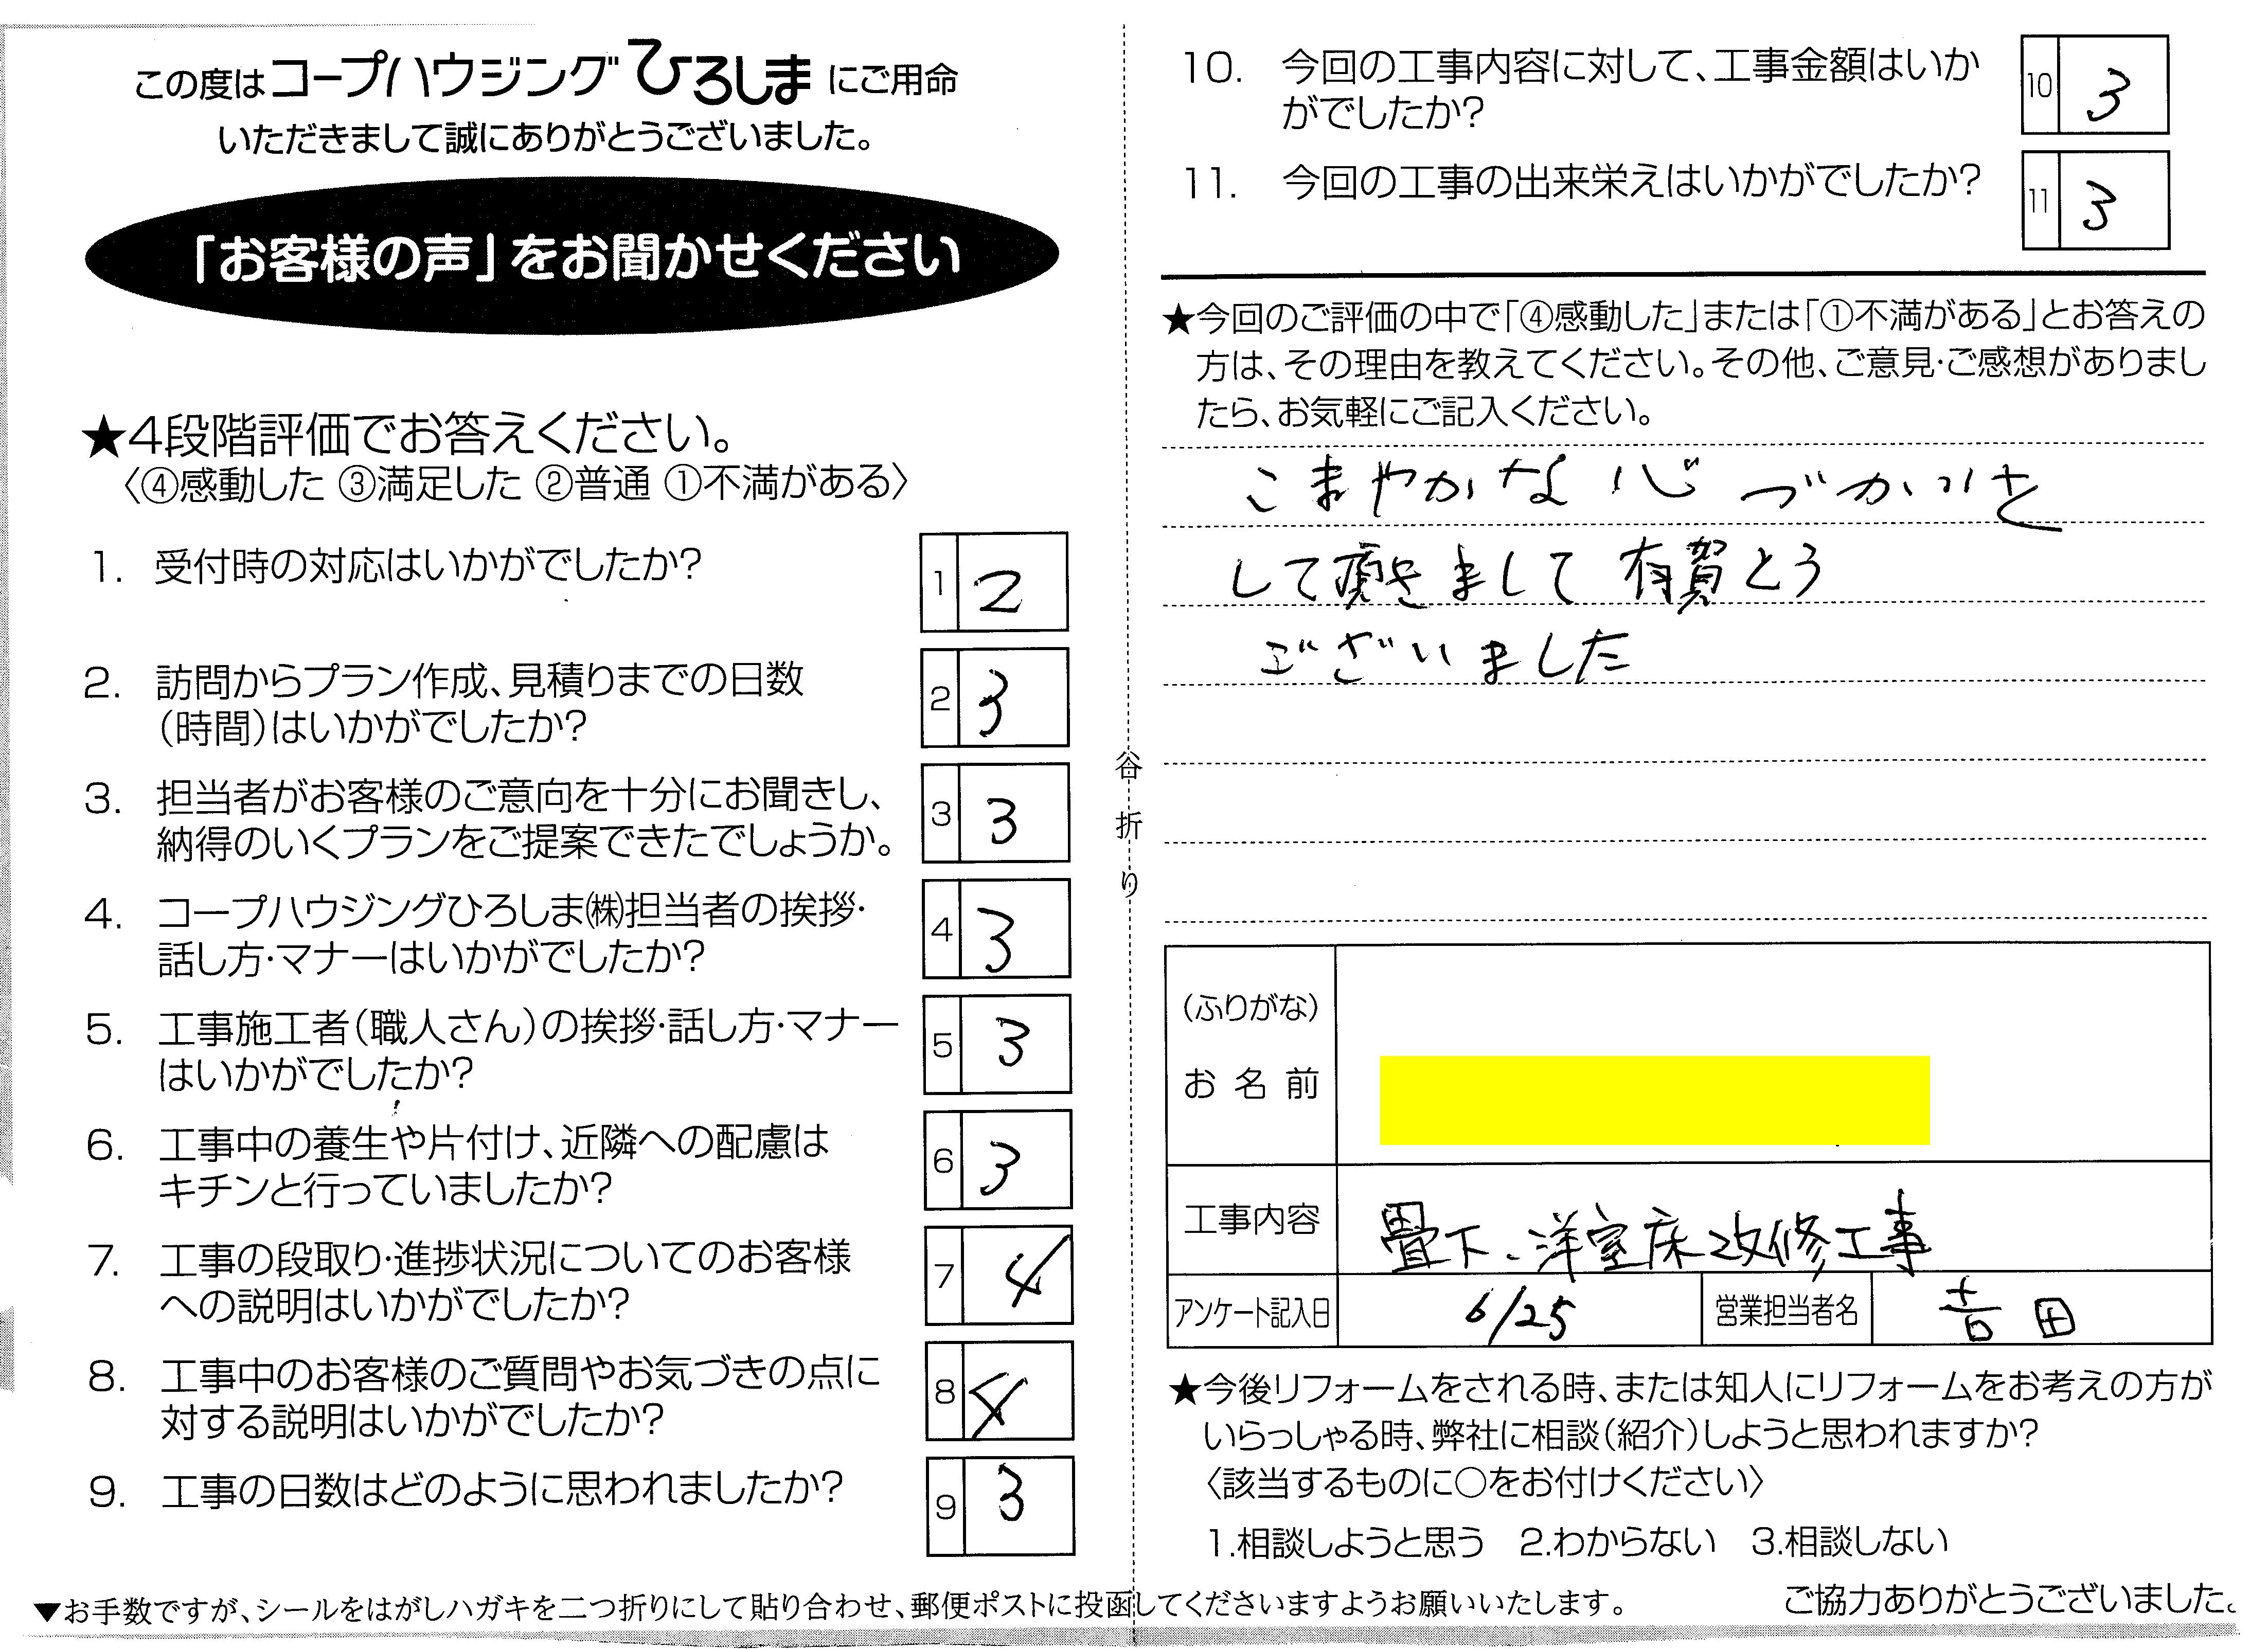 この度はコープハウジングひろしまにご用命
いただきまして誠にありがとうございました。
「お客様の声」をお聞かせください
★4段階評価でお答えください。
〈④感動した ③満足した ②普通 ①不満がある〉
1. 受付時の対応はいかがでしたか?
1 2
2. 訪問からプラン作成、見積りまでの日数
(時間)はいかがでしたか?
2 3
3. 担当者がお客様のご意向を十分にお聞きし、
納得のいくプランをご提案できたでしょうか。
3 3
4. コープハウジングひろしま㈱担当者の挨拶・
話し方・マナーはいかがでしたか?
4 3
5. 工事施工者(職人さん)の挨拶・話し方・マナー
はいかがでしたか?
5 3
6. 工事中の養生や片付け、近隣への配慮は
キチンと行っていましたか?
6 3
7. 工事の段取り・進捗状況についてのお客様
への説明はいかがでしたか?
7 4
8. 工事中のお客様のご質問やお気づきの点に
対する説明はいかがでしたか?
8 4
9. 工事の日数はどのように思われましたか?
9 3
谷折り
10. 今回の工事内容に対して、工事金額はいか
がでしたか?
10 3
11. 今回の工事の出来栄えはいかがでしたか?
11 3
★今回のご評価の中で「④感動した」または「①不満がある」とお答えの
方は、その理由を教えてください。その他、ご意見・ご感想がありまし
たら、お気軽にご記入ください。
こまやかな心づかいを
して頂きまして有賀とう
ございました
(ふりがな)
お名前
工事内容 畳下、洋室床改修工事
アンケート記入日 6/25 営業担当者名 吉田
★今後リフォームをされる時、または知人にリフォームをお考えの方が
いらっしゃる時、弊社に相談(紹介)しようと思われますか?
〈該当するものに○をお付けください〉
1.相談しようと思う 2.わからない 3.相談しない
▼お手数ですが、シールをはがしハガキを二つ折りにして貼り合わせ、郵便ポストに投函してくださいますようお願いいたします。
ご協力ありがとうございました。